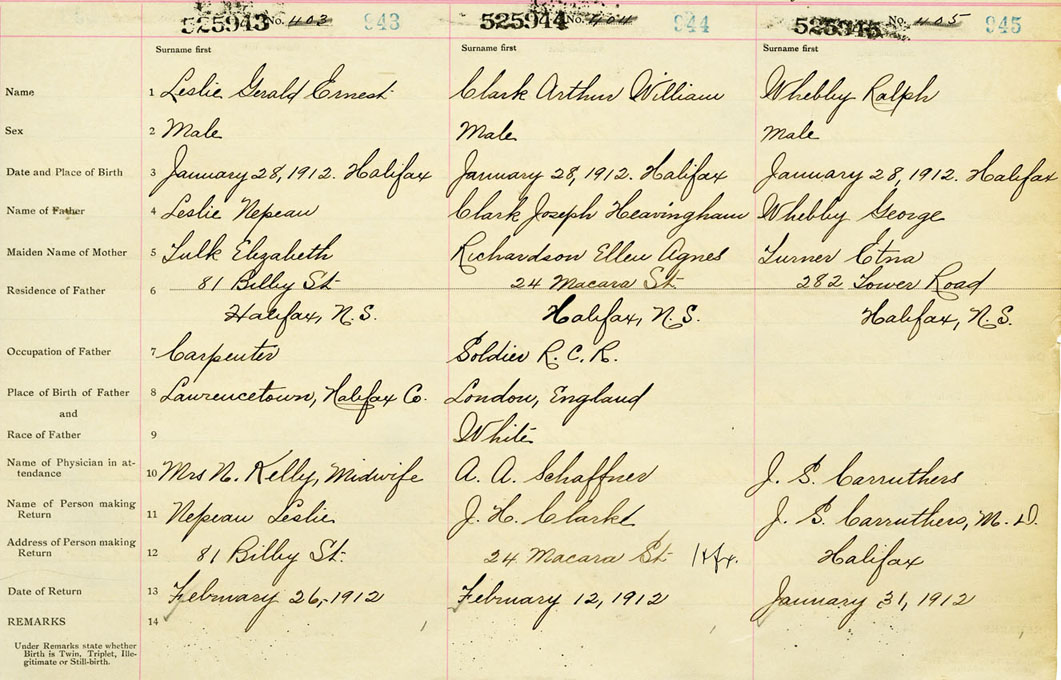 525943 No. 403 943 525944 No. 404 944 525945 No. 405 945
Surname first Surname first Surname first
Name 1 Leslie Gerald Ernest Clark Arthur William Whebby Ralph
Sex 2 Male Male Male
Date and Place of Birth 3 January 28, 1912. Halifax January 28, 1912. Halifax January 28, 1912. Halifax
Name of Father 4 Leslie Nepean Clark Joseph Heavingham Whebby George
Maiden Name of Mother 5 Tulk Elizabeth Richardson Ellen Agnes Turner Etna
Residence of Father 6 81 Bilby St. 24 Macara St. 282 Tower Road
Halifax, N.S. Halifax, N.S. Halifax, N.S.
Occupation of Father 7 Carpenter Soldier R.C.R.
Place of Birth of Father 8 Lawrencetown, Halifax Co. London, England
and
Race of Father 9 White
Name of Physician in at-
tendance 10 Mrs N. Kelly, Midwife A. A. Schaffner J. S. Carruthers
Name of Person making
Return 11 Nepean Leslie J. H. Clarke J. S. Carruthers, M.D.
Address of Person making
Return 12 81 Bilby St. 24 Macara St Hfx. Halifax
Date of Return 13 February 26, 1912 February 12, 1912 January 31, 1912
REMARKS 14
Under Remarks state whether
Birth is Twin, Triplet, Ille-
gitimate or Still-birth.